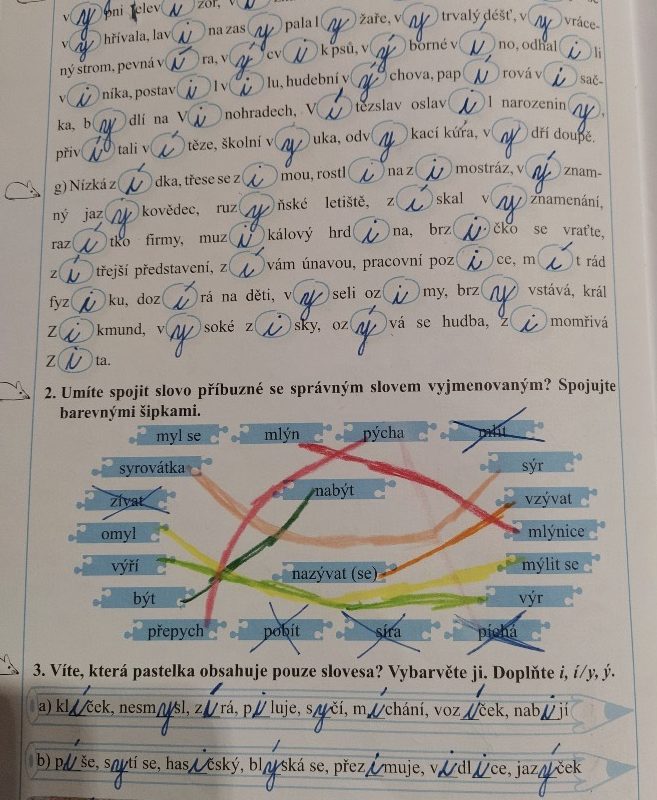 vypni televizor, v
vyhřívala, lavina zasypala lyžaře, vytrvalý déšť, vyvráce-
ný strom, pevná víra, výcvik psů, výborné víno, odhalili
viníka, postavil vilu, hudební výchova, papírová visač-
ka, bydlí na Vinohradech, Vítězslav oslavil narozeniny,
přivítali vítěze, školní výuka, odvykací kúra, vydří doupě.
g) Nízká zídka, třese se zimou, rostlina z Simostráz, význam-
ný jazykovědec, ruzyňské letiště, získal vyznamenání,
razítko firmy, muzikálový hrdina, brzičko se vraťte,
zítřejší představení, zívám únavou, pracovní pozice, mít rád
fyziku, dozírá na děti, vyseli ozimy, brzy vstává, král
Zikmund, vysoké zisky, ozývá se hudba, zimomřivá
Zita.
2. Umíte spojit slovo příbuzné se správným slovem vyjmenovaným? Spojujte
barevnými šipkami.
myl se mlýn pýcha mlít
syrovátka sýr
nabýt
zívat vzývat
omyl mlýnice
výří nazývat (se) mýlit se
být výr
přepych pobít síra píchá
3. Víte, která pastelka obsahuje pouze slovesa? Vybarvěte ji. Doplňte i, í/y, ý.
a) klíček, nesmysl, zírá, piluje, syčí, míchání, vozíček, nabijí
b) píše, sytí se, hasičský, blýská se, přezimuje, vidlice, jazýček